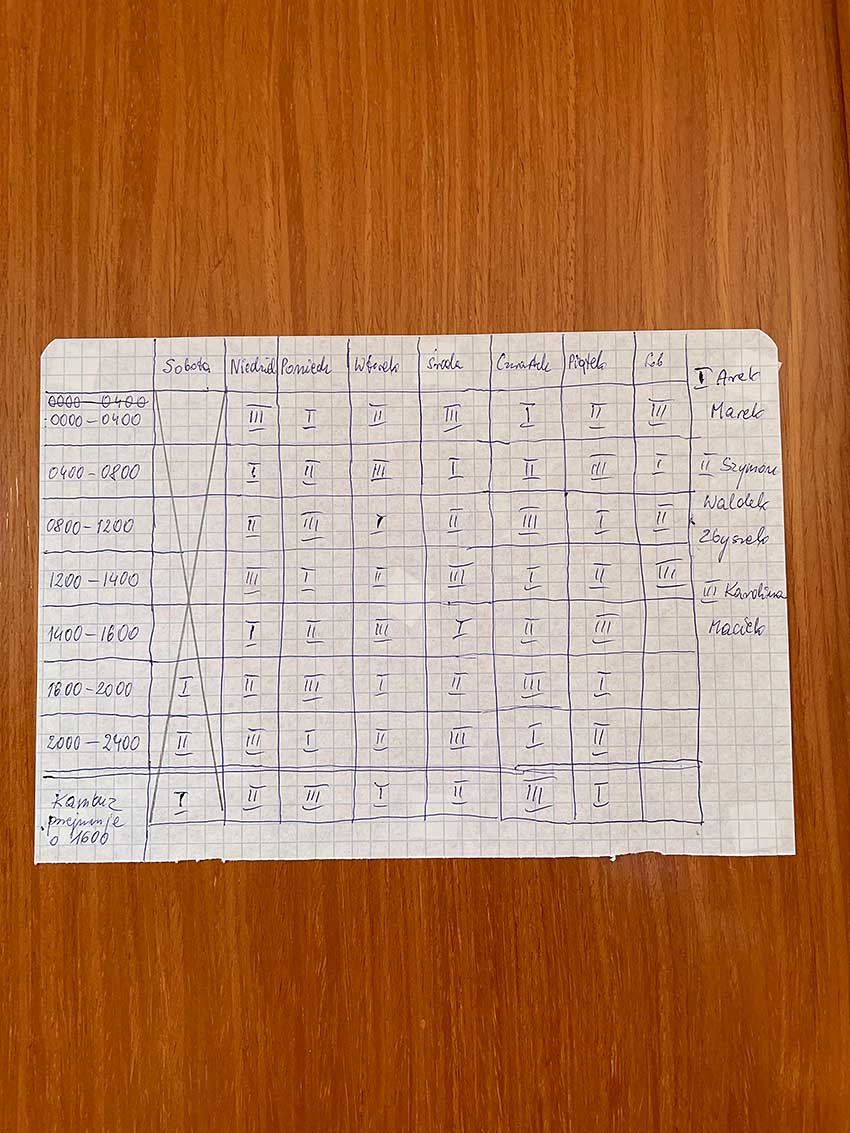 Sobota Niedziel Poniedz Wtorek Środa Czwartek Piątek Sob
0000 – 0400
0000 – 0400 III I II III I II III
0400 – 0800 I II III I II III I
0800 – 1200 II III I II III I II
1200 – 1400 III I II III I II III
1400 – 1600 I II III I II III
1600 – 2000 I II III I II III I
2000 – 2400 II III I II III I II
Kambuz
przejmuje
o 1600 I II III I II III I
I Arek
Marek
II Szymon
Waldek
Zbyszek
III Karolina
Maciek